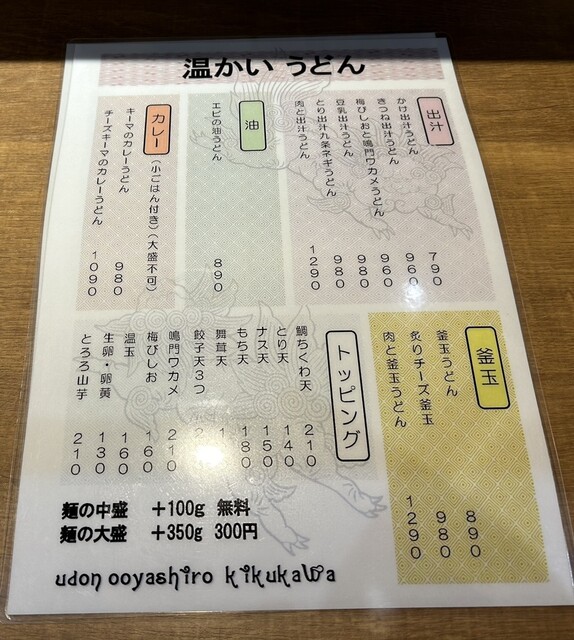 温かいうどん
出汁
かけ出汁うどん 790
きつね出汁うどん 960
梅びしおと鳴門ワカメうどん 960
豆乳出汁うどん 980
とり出汁九条ネギうどん 980
肉と出汁うどん 1290
油
エビの油うどん 890
カレー (小ごはん付き)(大盛不可)
キーマのカレーうどん 980
チーズキーマのカレーうどん 1090
釜玉
釜玉うどん 890
炙りチーズ釜玉 980
肉と釜玉うどん 1290
トッピング
鯛ちくわ天 210
とり天 140
ナス天 150
もち天 180
舞茸天
餃子天3つ
鳴門ワカメ 210
梅びしお 160
温玉 160
生卵・卵黄 130
とろろ山芋 210
麺の中盛 +100g 無料
麺の大盛 +350g 300円
udon ooyashiro kikukawa